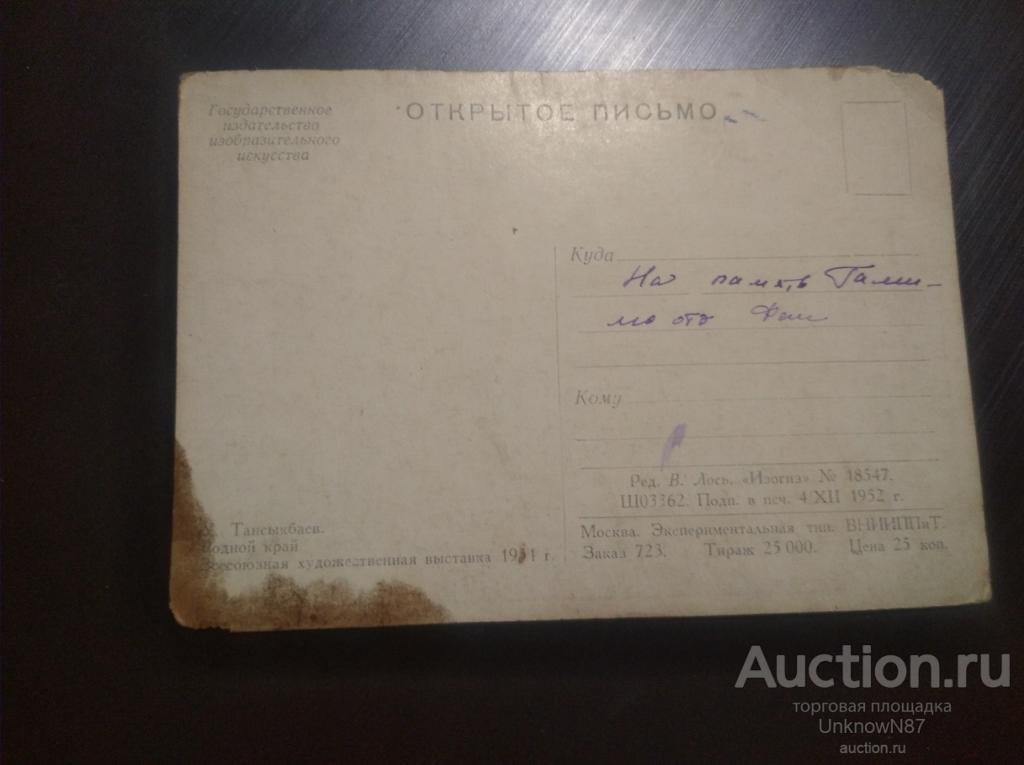 Государственное
издательство
изобразительного
искусства
ОТКРЫТОЕ ПИСЬМО
Куда
На память Гали-
от
Кому
Ред. В. Лось. «Изогиз» № 18547.
Ш03362. Подп. в печ. 4 XII 1952 г.
Москва. Экспериментальная тип. ВНИИППиТ.
Заказ 723. Тираж 25 000. Цена 25 коп.
Тансыкбаев.
Родной край
Всесоюзная художественная выставка 1951 г.
Auction.ru
торговая площадка
UnknowN87
auction.ru